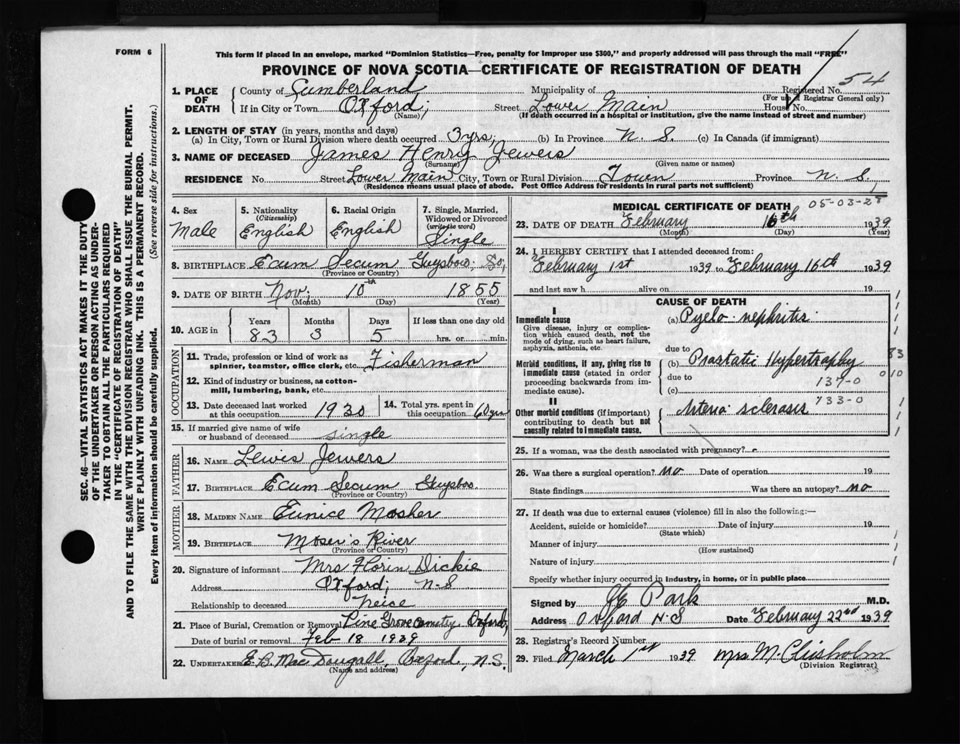 FORM 6
This form if placed in an envelope, marked "Dominion Statistics—Free, penalty for improper use $300," and properly addressed will pass through the mail "FREE"
PROVINCE OF NOVA SCOTIA—CERTIFICATE OF REGISTRATION OF DEATH
SEC. 46—VITAL STATISTICS ACT MAKES IT THE DUTY
OF THE UNDERTAKER OR PERSON ACTING AS UNDER-
TAKER TO OBTAIN ALL THE PARTICULARS REQUIRED
IN THE "CERTIFICATE OF REGISTRATION OF DEATH"
AND TO FILE THE SAME WITH THE DIVISION REGISTRAR WHO SHALL ISSUE THE BURIAL PERMIT.
WRITE PLAINLY WITH UNFADING INK. THIS IS A PERMANENT RECORD.
Every item of information should be carefully supplied. (See reverse side for instructions.)
1. PLACE OF DEATH
County of Cumberland Municipality of Registered No. 54
(For use of Registrar General only)
If in City or Town Oxford; Street Lower Main House No.
(Name) (If death occurred in a hospital or institution, give the name instead of street and number)
2. LENGTH OF STAY (in years, months and days)
(a) In City, Town or Rural Division where death occurred 3 yrs; (b) In Province N. S. (c) In Canada (if immigrant)
3. NAME OF DECEASED James Henry Jewers
(Surname) (Given name or names)
RESIDENCE No. Street Lower Main City, Town or Rural Division Town Province N. S,
(Residence means usual place of abode. Post Office Address for residents in rural parts not sufficient)
4. Sex
Male
5. Nationality
(Citizenship)
English
6. Racial Origin
English
7. Single, Married,
Widowed or Divorced
(write the word)
Single
8. BIRTHPLACE Ecum Secum Guysboro; Co,
(Province or Country)
9. DATE OF BIRTH Nov; 10th 1855
(Month) (Day) (Year)
10. AGE in
Years Months Days If less than one day old
83 3 5 hrs. or min.
OCCUPATION
11. Trade, profession or kind of work as
spinner, teamster, office clerk, etc. Fisherman
12. Kind of industry or business, as cotton-
mill, lumbering, bank, etc.
13. Date deceased last worked
at this occupation 1930
14. Total yrs. spent in
this occupation 60 yrs
15. If married give name of wife
or husband of deceased single
FATHER
16. NAME Lewis Jewers
17. BIRTHPLACE Ecum Secum Guysboro.
(Province or Country)
MOTHER
18. MAIDEN NAME Eunice Mosher
19. BIRTHPLACE Moser's River
(Province or Country)
20. Signature of informant Mrs Florin Dickie
Address Oxford; N-S
Relationship to deceased Neise
21. Place of Burial, Cremation or Removal Pine Grove Cemetry Oxford,
Date of burial or removal Feb 18 1939
22. UNDERTAKER E. B. Mac Dougall, Oxford, N.S.
(Name and address)
MEDICAL CERTIFICATE OF DEATH
05-03-28
23. DATE OF DEATH February 16th 1939
(Month) (Day) (Year)
24. I HEREBY CERTIFY that I attended deceased from:
February 1st 1939 to February 16th 1939
and last saw h alive on 19
CAUSE OF DEATH
I
Immediate cause
Give disease, injury or complica-
tion which caused death, not the
mode of dying, such as heart failure,
asphyxia, asthenia, etc.
(a) Pyelo-nephritis
due to
Morbid conditions, if any, giving rise to
immediate cause (stated in order
proceeding backwards from im-
mediate cause).
(b) Prostatic Hypertrophy
due to 137-0
(c)
83
010
II
Other morbid conditions (if important)
contributing to death but not
causally related to immediate cause.
Arterio sclerosis 733-0
25. If a woman, was the death associated with pregnancy?
26. Was there a surgical operation? no Date of operation 19
State findings Was there an autopsy? no
27. If death was due to external causes (violence) fill in also the following:—
Accident, suicide or homicide? Date of injury 19
(State which)
Manner of injury
(How sustained)
Nature of injury
Specify whether injury occurred in industry, in home, or in public place
Signed by Park M.D.
Address Oxford N.S Date February 22nd 1939
28. Registrar's Record Number
29. Filed March 1st 1939 Mrs M. Chisholm
(Division Registrar)